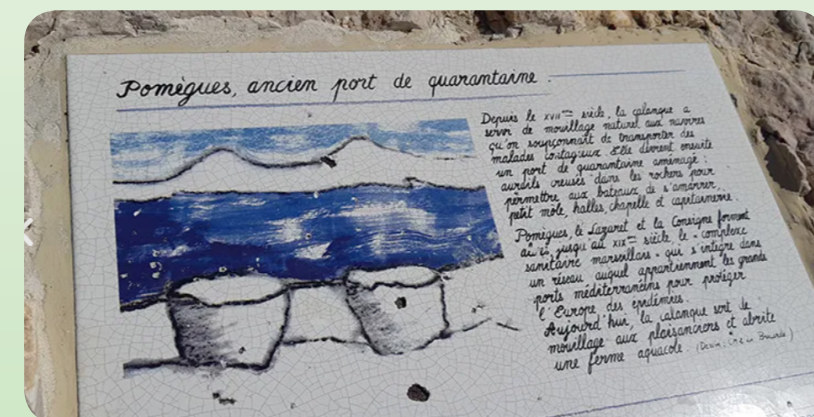 Pomègues, ancien port de quarantaine
Depuis le XVIIème siècle, la calanque a
servi de mouillage naturel aux navires
qu'on soupçonnait de transporter des
malades contagieux. Elle devient ensuite
un port de quarantaine aménagé :
creusés dans les rochers pour
permettre aux bateaux de s'amarrer,
petit môle, halles, chapelle et capitainerie.
Pomègues, le Lazaret et la Consigne forment
jusqu'au XIXème siècle, le "complexe
sanitaire marseillais" qui s'intègre dans
un réseau auquel appartiennent les grands
ports méditerranéens pour protéger
l'Europe des épidémies.
Aujourd'hui, la calanque sert de
mouillage aux plaisanciers et abrite
une ferme aquacole.